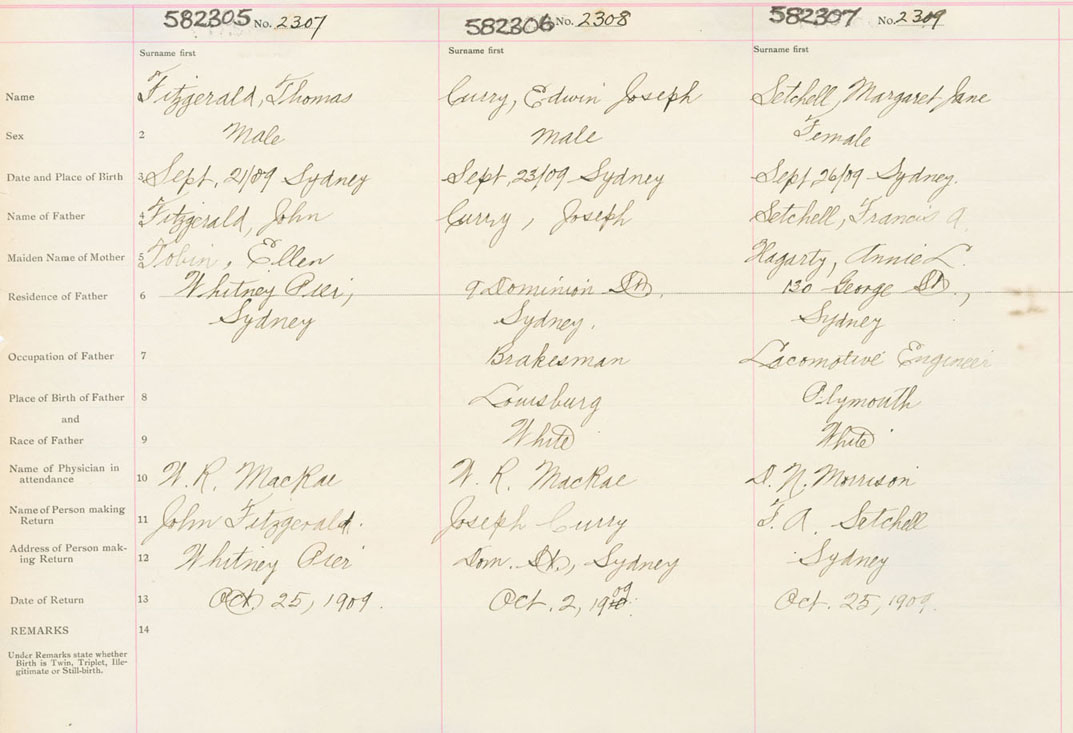 582305 No. 2307 582306 No. 2308 582307 No. 2309
Surname first Surname first Surname first
Name 1 Fitzgerald, Thomas Curry, Edwin Joseph Setchell, Margaret Jane
Sex 2 Male Male Female
Date and Place of Birth 3 Sept. 21/09 Sydney Sept. 23/09 Sydney Sept 26/09 Sydney.
Name of Father 4 Fitzgerald, John Curry, Joseph Setchell, Francis A.
Maiden Name of Mother 5 Tobin, Ellen Hagarty, Annie L.
Residence of Father 6 Whitney Pier, 9 Dominion St., 130 George St.,
Sydney Sydney. Sydney
Occupation of Father 7 Brakesman Locomotive Engineer
Place of Birth of Father 8 Louisburg Plymouth
and
Race of Father 9 White White
Name of Physician in
attendance 10 W. R. MacRae W. R. MacRae D. N. Morrison
Name of Person making
Return 11 John Fitzgerald. Joseph Curry F. A. Setchell
Address of Person mak-
ing Return 12 Whitney Pier Dom. St., Sydney Sydney
Date of Return 13 Oct. 25, 1909. Oct. 2, 1909. Oct. 25, 1909.
REMARKS 14
Under Remarks state whether
Birth is Twin, Triplet, Ille-
gitimate or Still-birth.